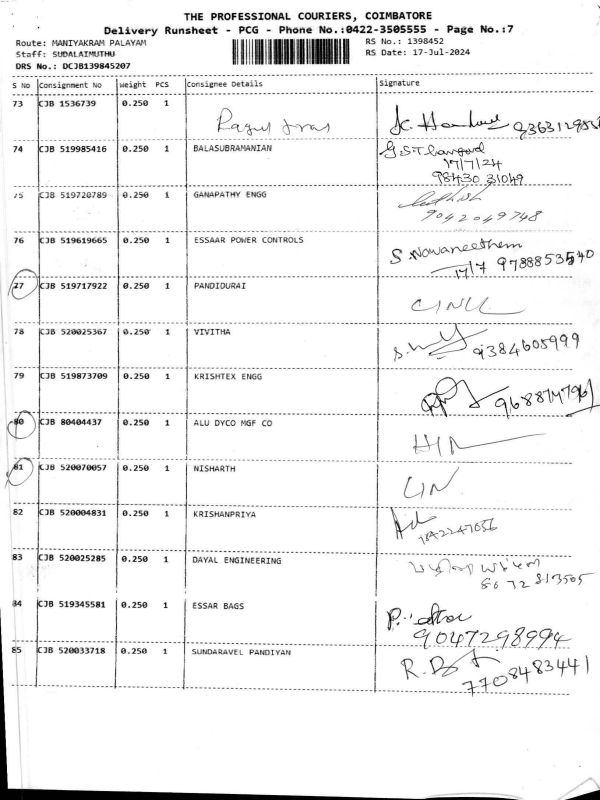 THE PROFESSIONAL COURIERS, COIMBATORE
Delivery Runsheet - PCG - Phone No.:0422-3505555 - Page No.:7
Route: MANIYAKRAM PALAYAM RS No.: 1398452
Staff: SUDALAIMUTHU RS Date: 17-Jul-2024
DRS No.: DCJB139845207
S No Consignment No Weight PCS Consignee Details Signature
73 CJB 1536739 0.250 1
74 CJB 519985416 0.250 1 BALASUBRAMANIAN
17/7/24
98430 31049
75 CJB 519720789 0.250 1 GANAPATHY ENGG
9042049748
76 CJB 519619665 0.250 1 ESSAAR POWER CONTROLS S. Nowaneethem
17/7 9788853540
77 CJB 519717922 0.250 1 PANDIDURAI
78 CJB 520025367 0.250 1 VIVITHA 9384605999
79 CJB 519873709 0.250 1 KRISHTEX ENGG
80 CJB 80404437 0.250 1 ALU DYCO MGF CO
81 CJB 520070057 0.250 1 NISHARTH
82 CJB 520004831 0.250 1 KRISHANPRIYA
83 CJB 520025285 0.250 1 DAYAL ENGINEERING
84 CJB 519345581 0.250 1 ESSAR BAGS
9047298994
85 CJB 520033718 0.250 1 SUNDARAVEL PANDIYAN
7708483441